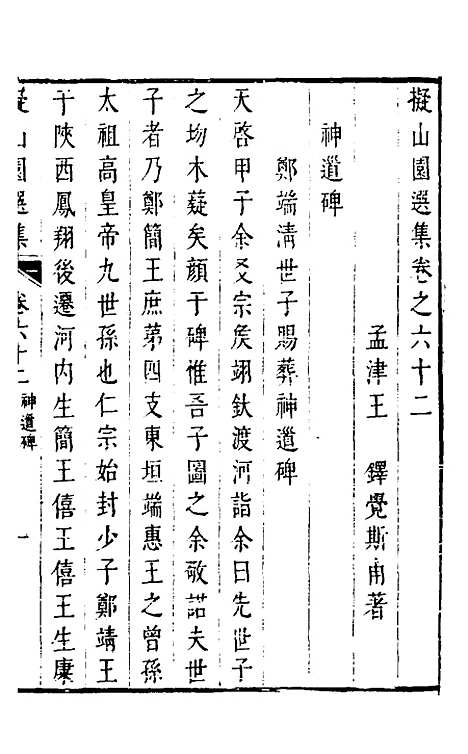 擬山園選集卷之六十二
孟津王　鐸覺斯甫著
神道碑
鄭端清世子賜葬神道碑
天啓甲子余友宗矦翊釱渡河詣余曰先世子
之坳木蕤矣顔于碑惟吾子圖之余敬諾夫世
子者乃鄭簡王庶第四支東垣端惠王之曾孫
太祖高皇帝九世孫也仁宗始封少子鄭靖王
于陝西鳳翔後遷河内生簡王僖王僖王生康
擬山園選集　卷六十二　神道碑　一